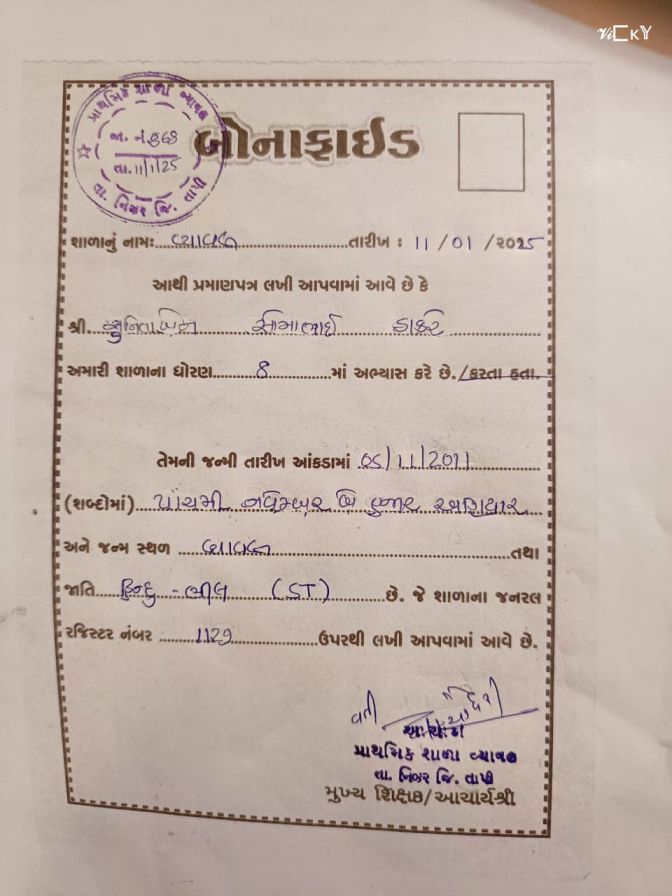 ViCKY
પ્રાથમિક શાળા વ્યાવલ
જા. નં. ૬૭૭
તા. 11/1/25
તા. નિઝર જિ. તાપી
બોનાફાઈડ
શાળાનું નામઃ વ્યાવલ તારીખ : 11 / 01 / ૨૦25
આથી પ્રમાણપત્ર લખી આપવામાં આવે છે કે
શ્રી સુનિતાબેન સોમાભાઈ ઠાકરે
અમારી શાળાના ધોરણ 8 માં અભ્યાસ કરે છે./કરતા હતા.
તેમની જન્મી તારીખ આંકડામાં 05/11/2011
(શબ્દોમાં) પાંચમી નવેમ્બર બે હજાર અગિયાર
અને જન્મ સ્થળ વ્યાવલ તથા
જાતિ હિન્દુ - ભીલ (ST) છે. જે શાળાના જનરલ
રજિસ્ટર નંબર 1129 ઉપરથી લખી આપવામાં આવે છે.
વતી
આચાર્ય
પ્રાથમિક શાળા વ્યાવલ
તા. નિઝર જિ. તાપી
મુખ્ય શિક્ષક/આચાર્યશ્રી